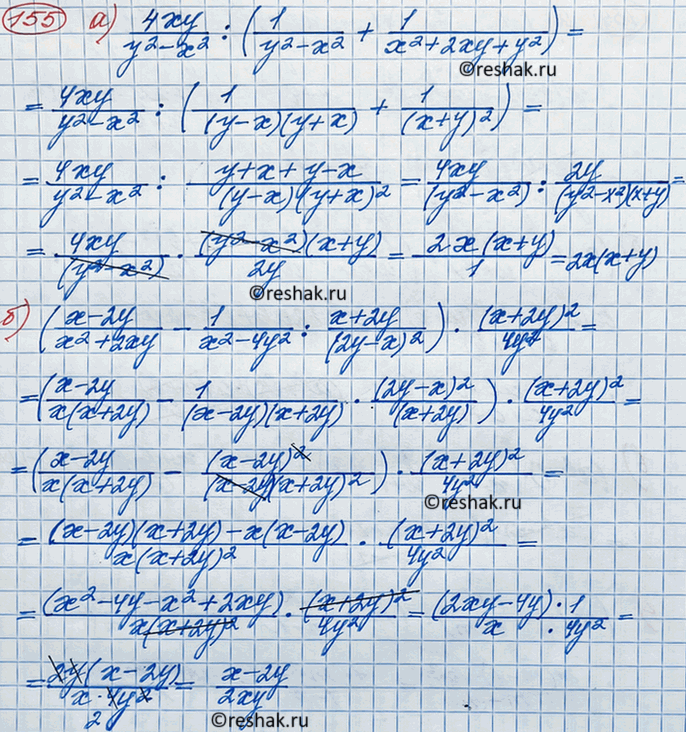 155 а) 4xy/(y²-x²) : (1/(y²-x²) + 1/(x²+2xy+y²)) =
©reshak.ru
= 4xy/(y²-x²) : (1/((y-x)(y+x)) + 1/(x+y)²) =
= 4xy/(y²-x²) : (y+x+y-x)/((y-x)(y+x)²) = 4xy/(y²-x²) : 2y/((y²-x²)(x+y)) =
= 4xy/(y²-x²) · (y²-x²)(x+y)/2y = 2·x(x+y)/1 = 2x(x+y)
©reshak.ru
б) ((x-2y)/(x²+2xy) - 1/(x²-4y²) : (x+2y)/(2y-x)²) · (x+2y)²/4y² =
= ((x-2y)/(x(x+2y)) - 1/((x-2y)(x+2y)) · (2y-x)²/(x+2y)) · (x+2y)²/4y² =
= ((x-2y)/(x(x+2y)) - (x-2y)²/((x-2y)(x+2y)²)) · (x+2y)²/4y² =
©reshak.ru
= ((x-2y)(x+2y)-x(x-2y))/(x(x+2y)²) · (x+2y)²/4y² =
= (x²-4y-x²+2xy)/(x(x+2y)²) · (x+2y)²/4y² = (2xy-4y)·1/(x·4y²) =
= 2y(x-2y)/(x·4y²) = (x-2y)/2xy
2
©reshak.ru